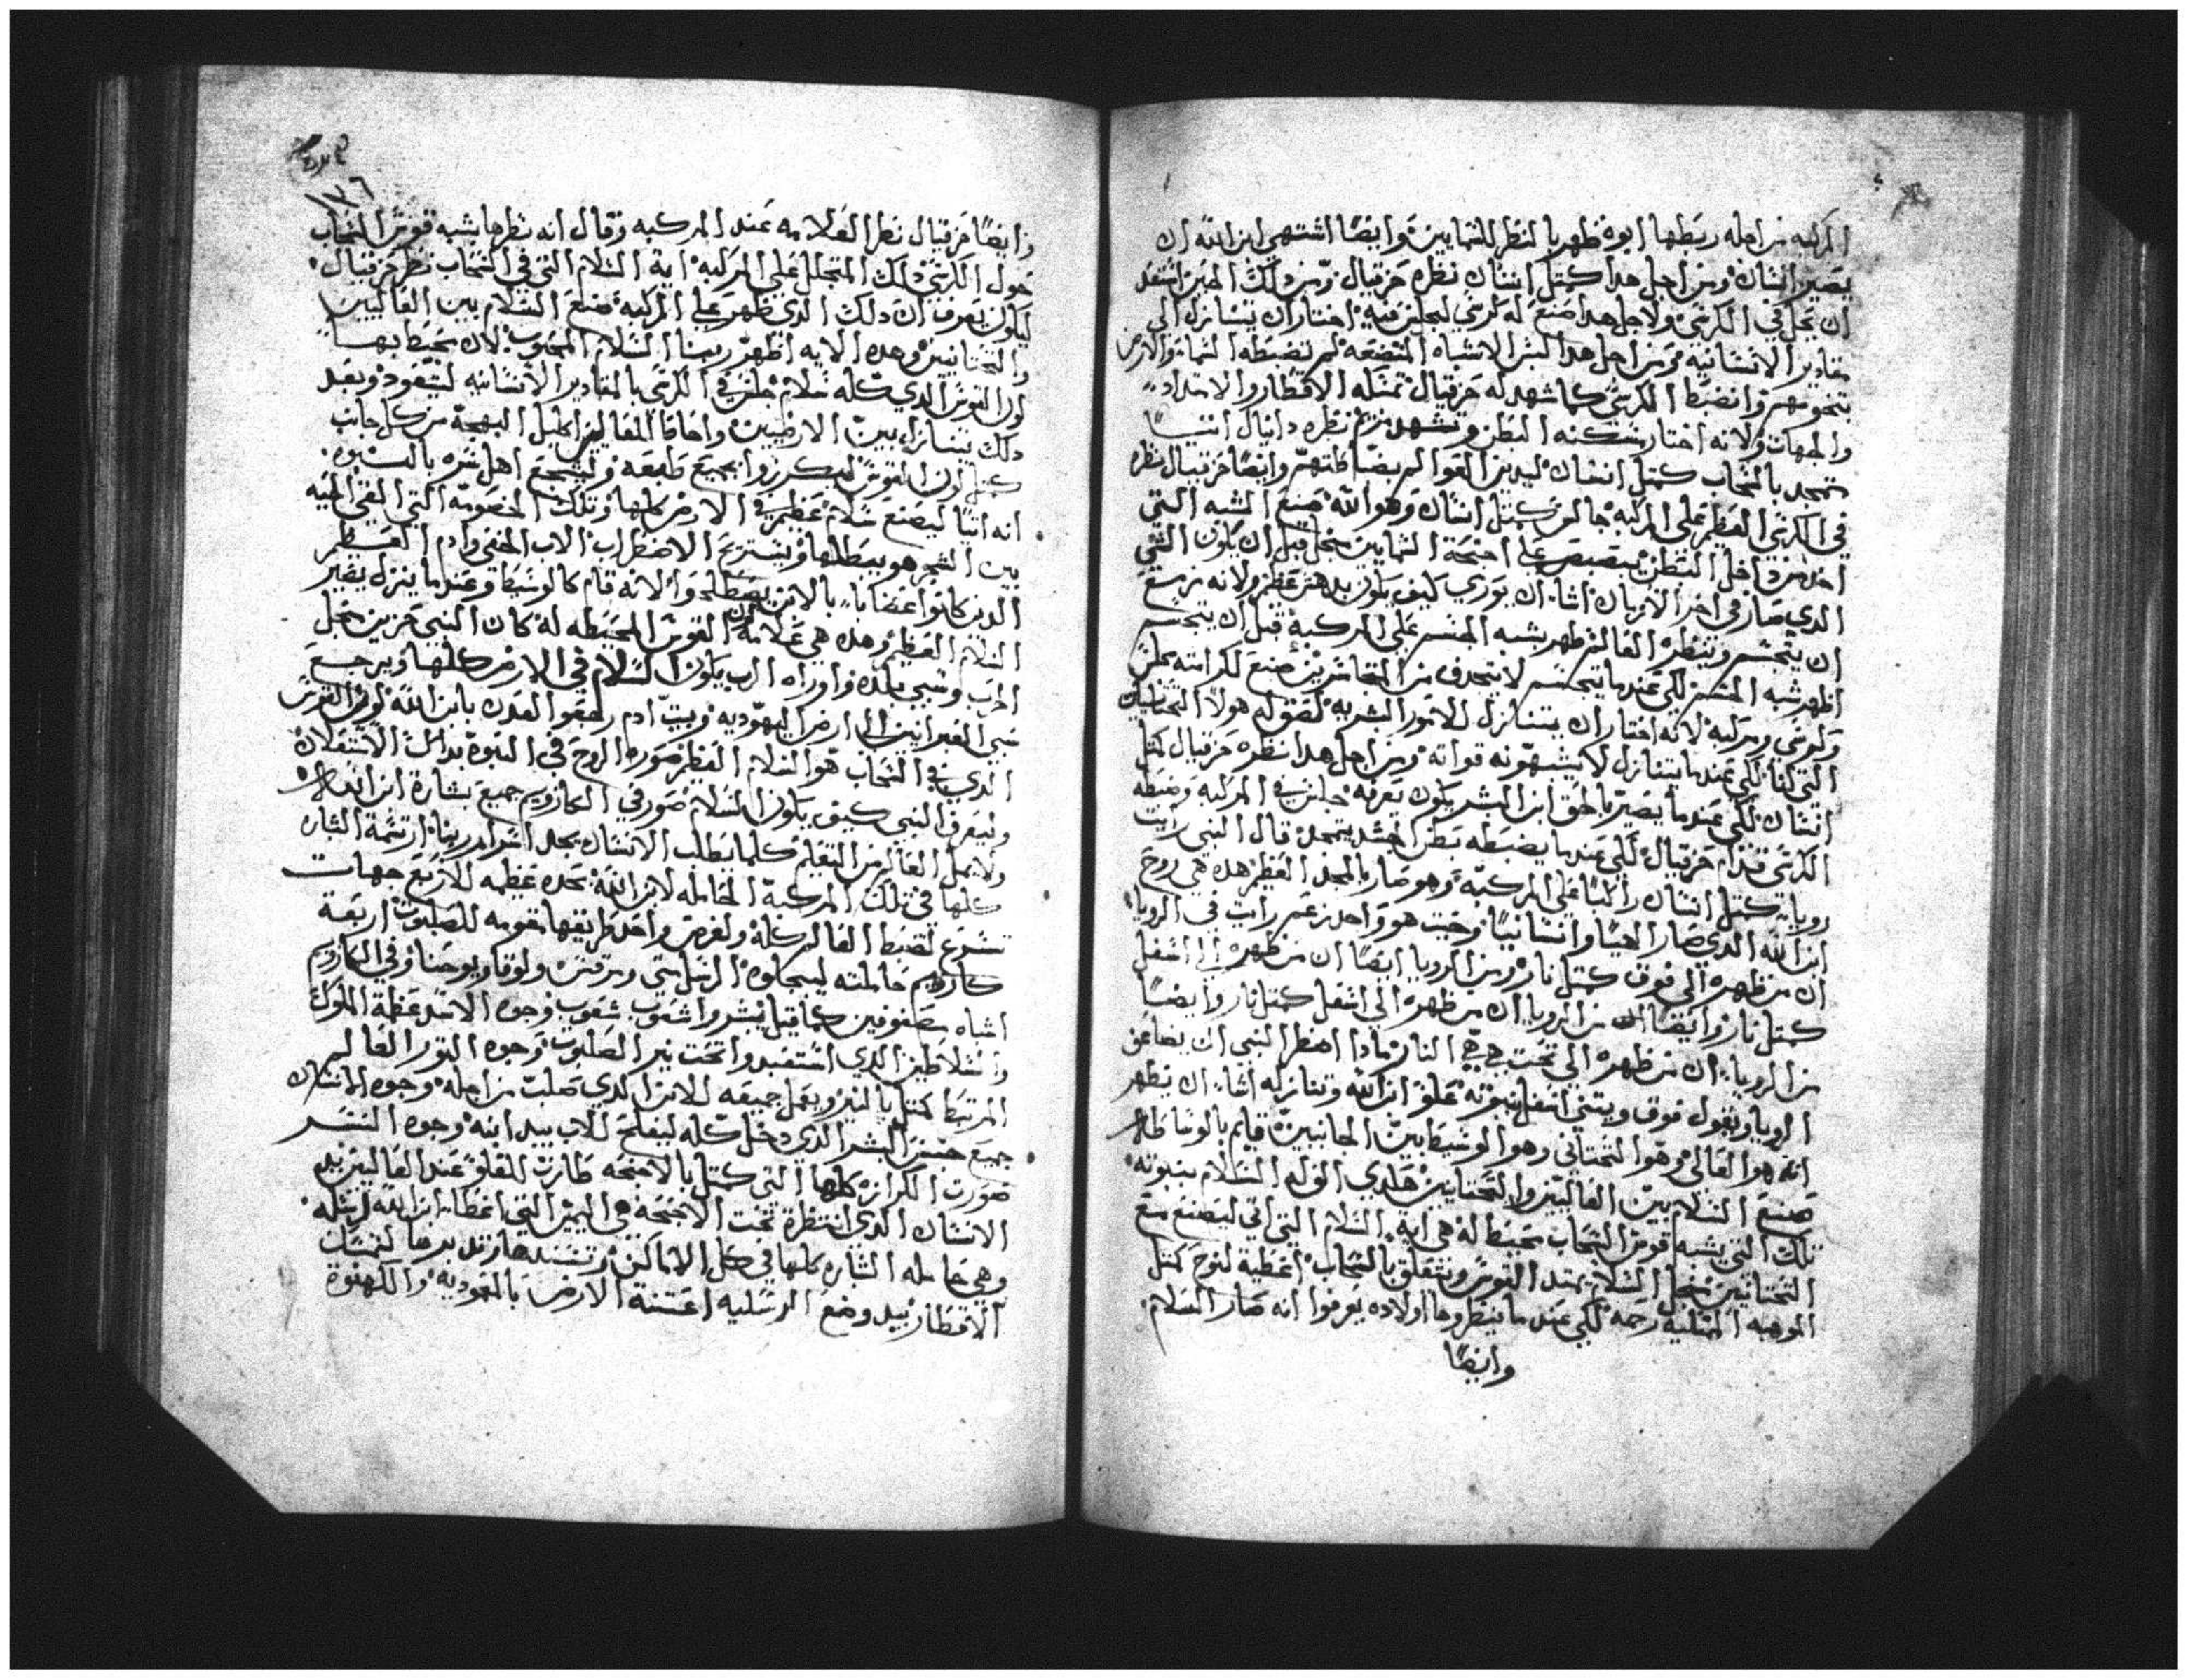 المركبه من اجله ربطها ابوه ظهر بالنظر للسمايين وايضًا اشتهي ابن الله ان
يصير انسان ومن اجل هدا كمثل انسان نظره حزقيال ومن دلك الحين استعد
ان يحل في الكرسي ولاجل هدا صنع له كرسي ليجلس فيه اختار ان يتنازل الي
مقادير الانسانيه ومن اجل هدا لبس الاشباه المتضعه لم تضبطه السما والارض
بتخومهم وانضبط الكرسي كما شهد له حزقيال تمثله الاقطار والامتداد
والجهات ولانه اختار سكنه البطن وتشهد نظره دانيال اتيًا
متمجد بالسحاب كمثل انسان ليدين العوالم وايضًا حزقيال نظره
في الكرسي العظيم على المركبه جالس كمثل انسان وهو الله صنع الشبه التي
اخد من داخل البطن على اجنحة السمايين قبل ان يكون الشي
الدي صار في اخر الازمان اشا ان يوري كيف يكون بدهش عظيم ولانه مزمع
ان يتجسم وينظره العالم ظهر بشبه الجسم على المركبه قبل ان يتجسم
اظهر شبه الجسم لكي عندما يتجسم لا يتجدف من صنع لكرامته مجلس
وكرسي ومركبه لانه اختار ان يتنازل للامور البشريه هولا التحتانيات
التي لنا لكي عندما يتنازل لا قواته ومن اجل هدا نظره حزقيال كمثل
انسان لكي عندما يصير بالحق ابن البشر يكون يعرفه جالس في المركبه وضبطه
الكرسي قدام حزقيال لكي عندما يضبطه بطن الجسد يتمجد قال النبي رايت
رويا كمثل انسان راكبًا على المركبه وهو صار بالمجد العظيم هده هي روح
ابن الله الدي صار الاهيًا وانسانيًا وحيث هو واحد زعم رايت في الرويا
ان من ظهره الي فوق كمثل نار ومن الرويا ايضًا ان من ظهره الي اسفل
كمثل نار وايضًا من الرويا ان من ظهره الي اسفل كمثل نار وايضًا
من الرويا ان من ظهره الي تحت هي النار مادا اضطر النبي ان يضاعف
الرويا ويقول فوق ويثني اسفل بنبوته علو ابن الله وتنازله اشا ان يظهر
انه هو العالي وهو التحتاني وهو الوسيط بين الجانبين قايم بالوساطه
صنع السلام بين العاليين والتحتانيين السلام بنبوته
تلك التي بشبه قوس السحاب محيط له هي اية السلام التي اتي ليصنع مع
التحتانيين السلام يمتد القوس ويتعلق بالسحاب اعطية لنوح كمثل
الموهبه الممتليه رحمه لكي عندما ينظروها اولاده يعرفوا انه صار السلام
وايضًا
١٧٦
وايضًا حزقيال نظر العلامه عند المركبه وقال انه نظرها بشبه قوس السحاب
حول الكرسي دلك المتجلل على المركبه اية السلام التي في السحاب نظر حزقيال
ليكون يعرف ان دلك الدي ظهر على المركبه صنع السلام بين العاليين
والتحتانيين وهده الايه اظهر ربنا السلام المحبوب لان محيط بها
لون القوس الدي كله سلام جلس في الكرسي بالمقادير الانسانيه ليتعود وبعد
دلك يتنازل بين الارضيين واحاط العاليين اكليل البهجة من كل جانب
كمثل لون القوس ليكرزوا بجميع طبعه ويشجع اهل سره بالنبوه
انه اتيًا ليصنع سلام عظيم في الارض كلها وتلك الخصومه التي القي الحيه
بين الشجر هو يبطلها ويستريح الاضطراب الاب الخفي وادم العظيم
الدين كانوا غضابا بالابن يصطلحوا لانه قام كالوسيط وعندما ينزل يصير
السلام العظيم وهده هي علامة لون القوس المحيطه له كان النبي حزين من اجل
الحرب وسبي بلده واوراه الرب يكون السلام في الارض كلها ويرجع
سبي العبرانيين الى ارض اليهوديه وبيت ادم رجعوا لعدن بابن الله لون القوس
الدي في السحاب هو السلام العظيم صوره الروح في النبوه بدالك الاستعلان
وليعرف النبي كيف يكون السلام صور في الكاروبيم جميع بشارة ابن العلي
ولا يمل العالم من التعليم كلما يطلب الانسان يجد اسرار ربنا ارتسمة البشاره
كلها في تلك المركبة الحامله لابن الله بحده عظيمه للاربع جهات
تسرع لضبط العالم كله ولغرض واحد طريقها بقومه للصلبوت اربعة
كاروبيم حاملته ليحاكوه الرسل متي ومرقس ولوقا ويوحنا وفي الكاروبيم
اشباه مصفوفين كما قيل بشروا شعوب شعوب وجوه الاسد عظمة الملوك
والسلاطين الدي استعبدوا تحت نير الصلبوت وجوه التور العالم
المرتبط كمثل بالنير ويعمل جميعه للابن الدي صلب من اجله وجوه الانسان
جميع جنس البشر الدي دخل كله ليفلح للاب بيد ابنه وجوه النسر
صورت الكرازه كلها التي كمثل بالاجنحه طارت للعلو عند العاليين يد
الانسان الدي انتظره تحت الاجنحه هي اليمين التي اعطا ابن الله لرسله
وهي حامله البشاره كلها في كل الاماكن وتسندها وتدبرها لتمسك
الاقطار بيد وضع الرسليه اعتنة الارض بالمعموديه والكهنوة